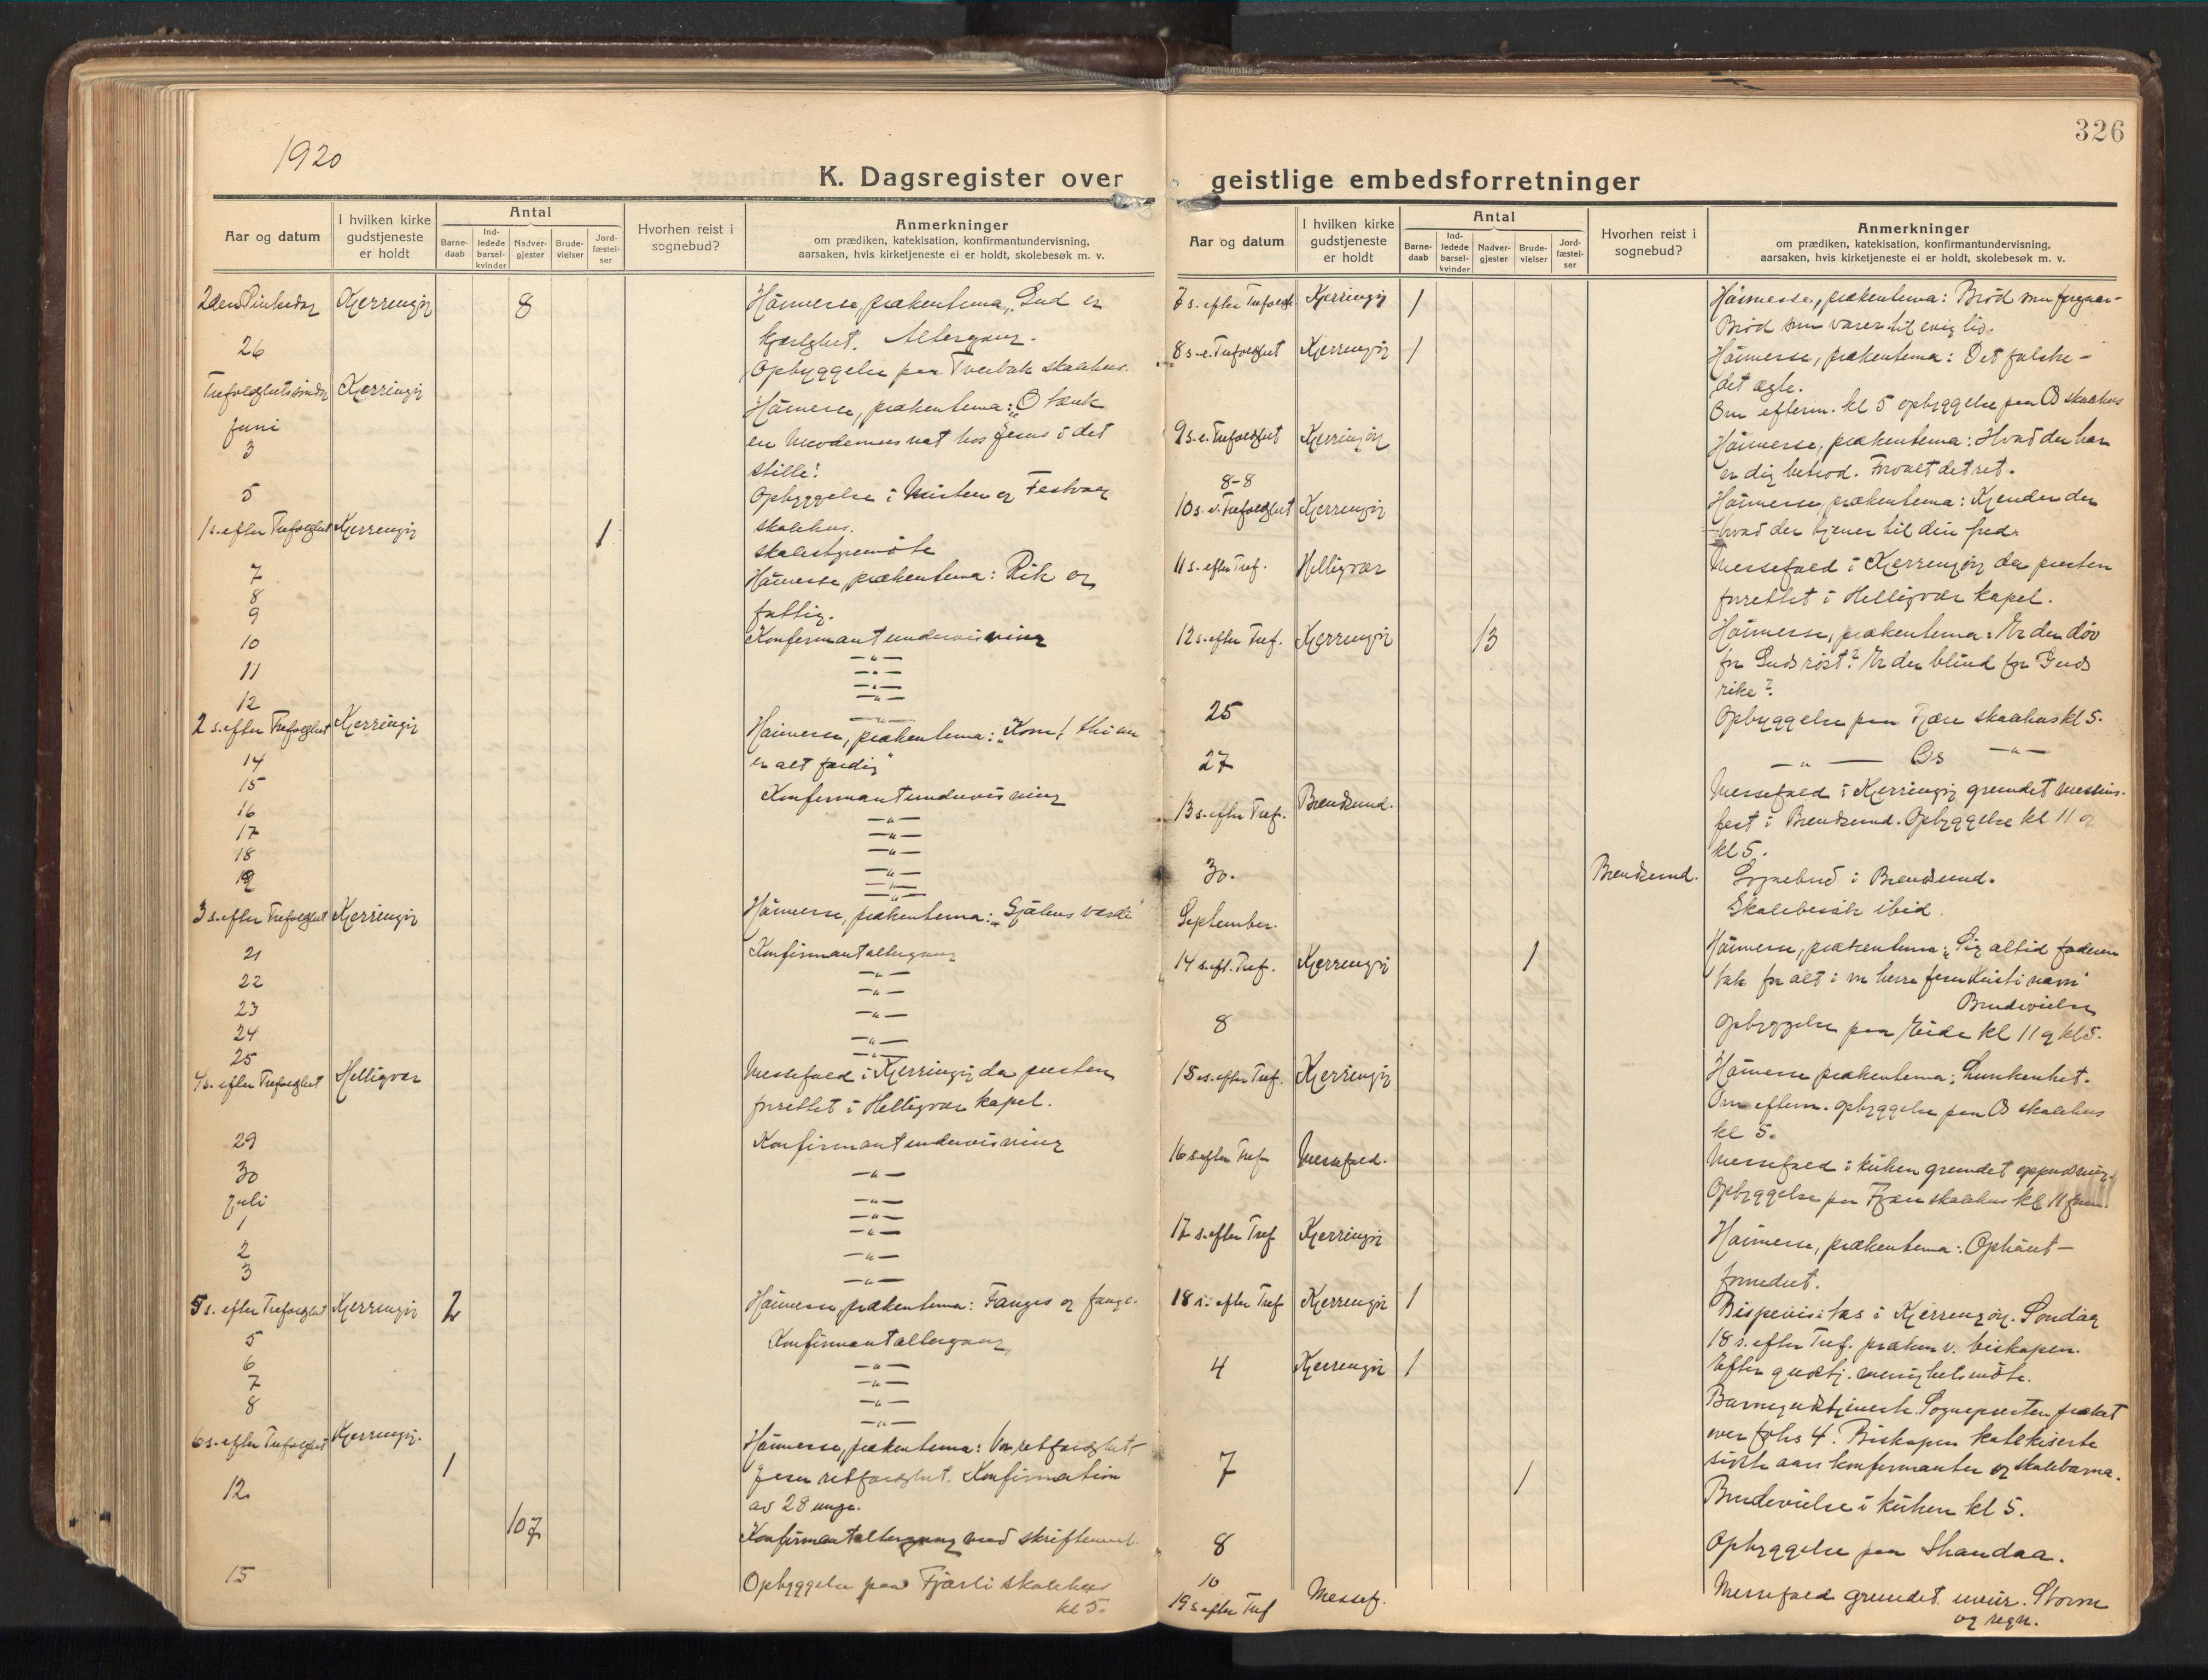 1920
326
K. Dagsregister over
geistlige embedsforretninger
Aar og datum
I hvilken kirke
gudstjeneste
er holdt
Antal
Barne-
daab
Ind-
ledede
barsel-
kvinder
Nadver-
gjester
Brude-
vielser
Jord-
fæstel-
ser
Hvorhen reist i
sognebud?
Anmerkninger
om prædiken, katekisation, konfirmantundervisning,
aarsaken, hvis kirketjeneste ei er holdt, skolebesøk m. v.
2den Pinsedag Kjerringøy 8 Håimesse, prækentema, "Gud er
kjærlighet. Altergang.
26 Opbyggelse paa Tverbak skolehus.
Trefoldighetssøndag Kjerringøy Håimesse, prækentema: "O tænk
Juni en Nicodemus nat hos Jesus i det
3 stille!
Opbyggelse i Misten og Festvaag
5 skolehus.
1 s. efter Trefoldighet Kjerringøy 1 skolestyremöte
7 Håimesse, prækentema: Rik og
8 fattig.
9
10 Konfirmantundervisning
11 — " —
— " —
— " —
12 — " —
2 s. efter Trefoldighet Kjerringøy Håimesse, prækentema: "Kom! thi nu
14 er alt færdig"
15 Konfirmantundervisning
16 — " —
17 — " —
18 — " —
19 — " —
3 s. efter Trefoldighet Kjerringøy Håimesse, prækentema: "Sjælens værdi"
21 Konfirmantaltergang
22 — " —
23 — " —
24 — " —
25 — " —
4 s. efter Trefoldighet Helligvær Messefald i Kjerringøy da presten
forrettet i Helligvær kapel.
29 Konfirmantundervisning
30 — " —
Juli — " —
1 — " —
2 — " —
3 — " —
5 s. efter Trefoldighet Kjerringøy 2 Håimesse, prækentema: Fanges og fange.
5 Konfirmantaltergang
6 — " —
7 — " —
8 — " —
6 s. efter Trefoldighet Kjerringøy. Håimesse, prækentema: Vor retfærdighet –
1 Jesu retfærdighet. Konfirmation
12 av 28 unge.
107 Konfirmantaltergang med skriftemaal.
15 Opbyggelse paa Fjærli skolehus
kl 5.
Aar og datum
I hvilken kirke
gudstjeneste
er holdt
Antal
Barne-
daab
Ind-
ledede
barsel-
kvinder
Nadver-
gjester
Brude-
vielser
Jord-
fæstel-
ser
Hvorhen reist i
sognebud?
Anmerkninger
om prædiken, katekisation, konfirmantundervisning,
aarsaken, hvis kirketjeneste ei er holdt, skolebesøk m. v.
7 s. efter Trefoldigh. Kjerringøy 1 Håimesse, prækentema: Bröd som forgaar –
Bröd som varer til evig liv.
8 s. e. Trefoldighet Kjerringøy 1 Håimesse, prækentema: Det falske –
det ægte.
Om efterm. kl 5 opbyggelse paa Os skolehus
9 s. e. Trefoldighet Kjerringøy Håimesse, prækentema: Hvad du har
er dig betrod. Forvalt det ret.
8-8
10 s. e. Trefoldighet Kjerringøy Håimesse, prækentema: Kjender du
hvad der tjener til din fred.
11 s. efter Tref. Helligvær Messefald i Kjerringøy da presten
forrettet i Helligvær kapel.
12 s. efter Tref. Kjerringøy 13 Håimesse, prækentema: Er du döv
for Guds röst? Er du blind for Guds
rike?
25 Opbyggelse paa Fjære skolehus kl 5.
27 — " — Os — " —
13 s. efter Tref. Brendsund. Messefald i Kjerringøy grundet missions-
fest i Brendsund. Opbyggelse kl 11 og
kl 5.
30. Brendsund. Sognebud i Brendsund.
Skolebesök ibid.
September.
14 s. eft. Tref. Kjerringøy 1 Håimesse, prækentema: "Sig altid faderen
tak for alt i vor herre Jesu Kristi navn"
Brudevielse
8 Opbyggelse paa Eide kl 11 og kl 5.
15 s. efter Tref. Kjerringøy Håimesse prækentema: Lunkenhet.
Om efterm. opbyggelse paa Os skolehus
kl 5.
16 s. efter Tref. Messefald. Messefald i kirken grundet oppudsning.
Opbyggelse paa Fjære skolehus kl 11 form.
17 s. efter Tref. Kjerringøy Håimesse, prækentema: Ophöiet –
fornedret.
18 s. efter Tref Kjerringøy 1 Bispevisitas i Kjerringøy. Söndag
18 s. efter Tref. præken v. biskopen.
Efter gudstj. menighetsmöte.
4 Kjerringøy 1 Barnegudstjeneste. Sognepresten præket
over Johs 4. Biskopen katekiserte
sidste aars konfirmanter og skolebarna.
7 1 Brudevielse i kirken kl 5.
8 Opbyggelse paa Skandaa.
10
19 s efter Tref Messef. Messefald grundet uveir. Storm
og regn.